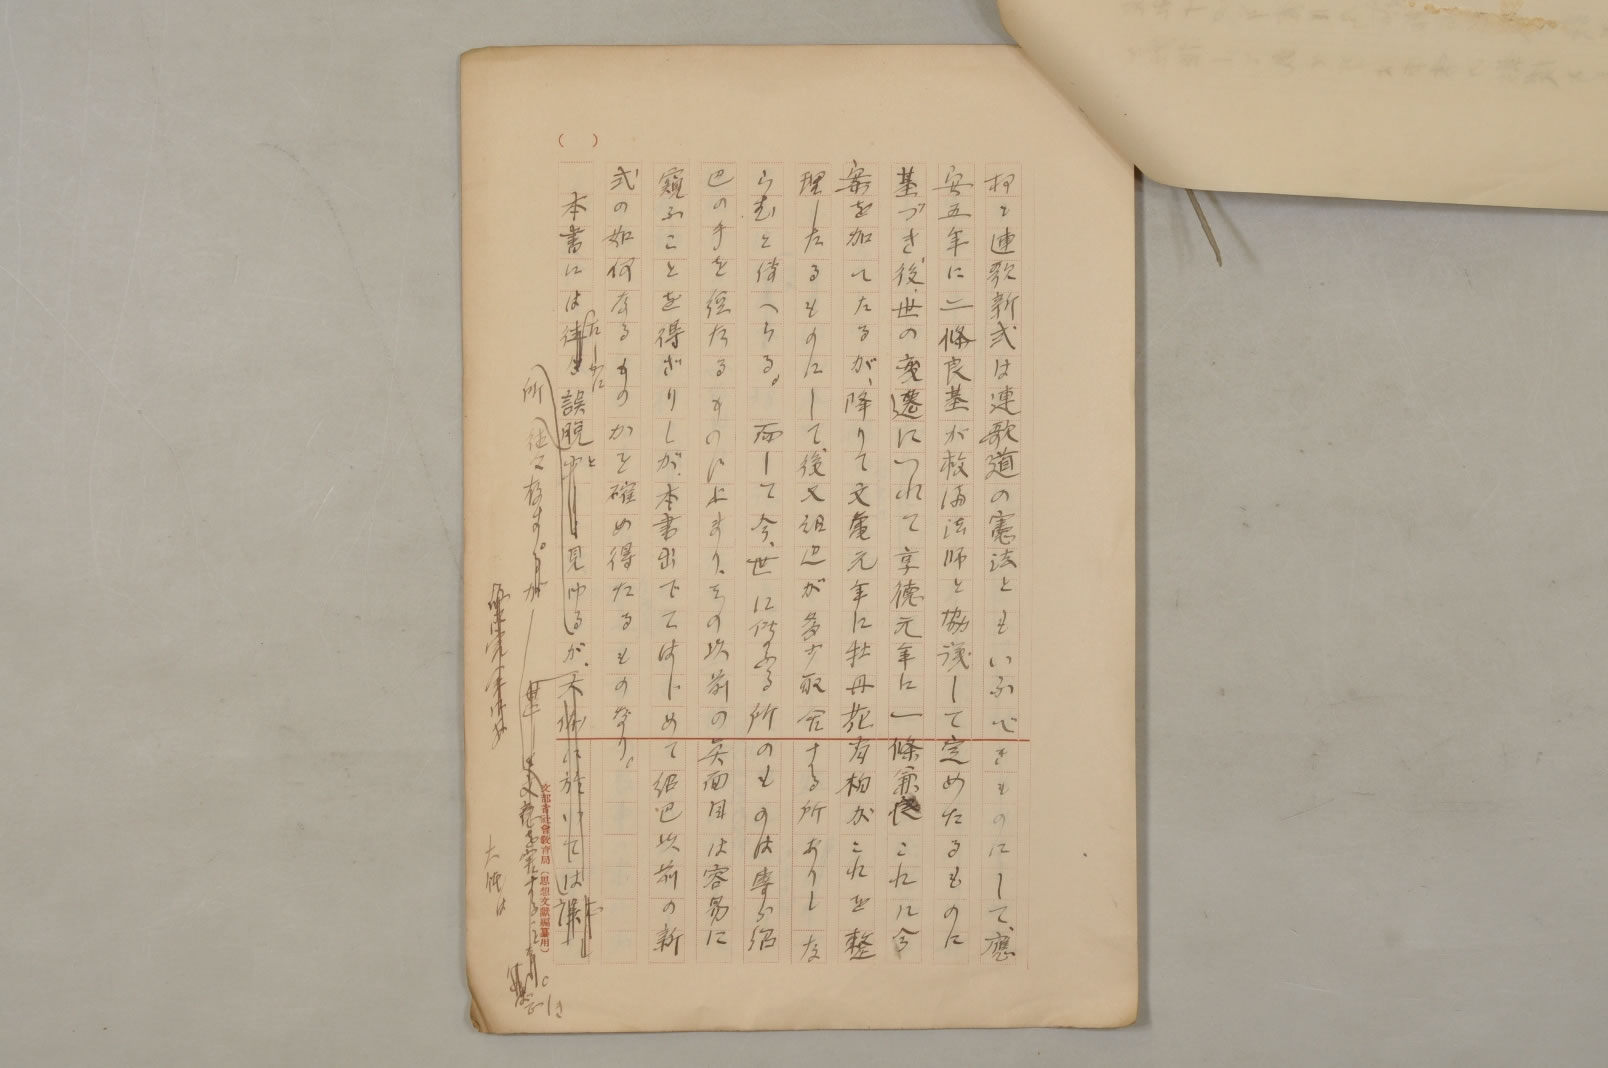 抑も連歌新式は連歌道の憲法ともいふべきものにして、應
安五年に二條良基が救済法師と協議して定めたるものに
基づき後、世の変遷につれて享徳元年に一條兼良これに今
案を加へたるが、降りて文亀元年に牡丹花肖柏がこれを整
理したるものにして後又紹巴が多少取合する所ありしな
らむと伝へらる。而して今、世に伝ふる所のものは専ら紹
巴の手を経たるものに止まり、その以前の真面目は容易に
窺ふことを得ざりしが、本書出でてはじめて紹巴以前の新
式の如何なるものかを確め得たるものなり。
本書には往々誤脱と見ゆるが、
所
往々存す。
大体は
文部省社會教育局(思想文獻編纂用)
( )